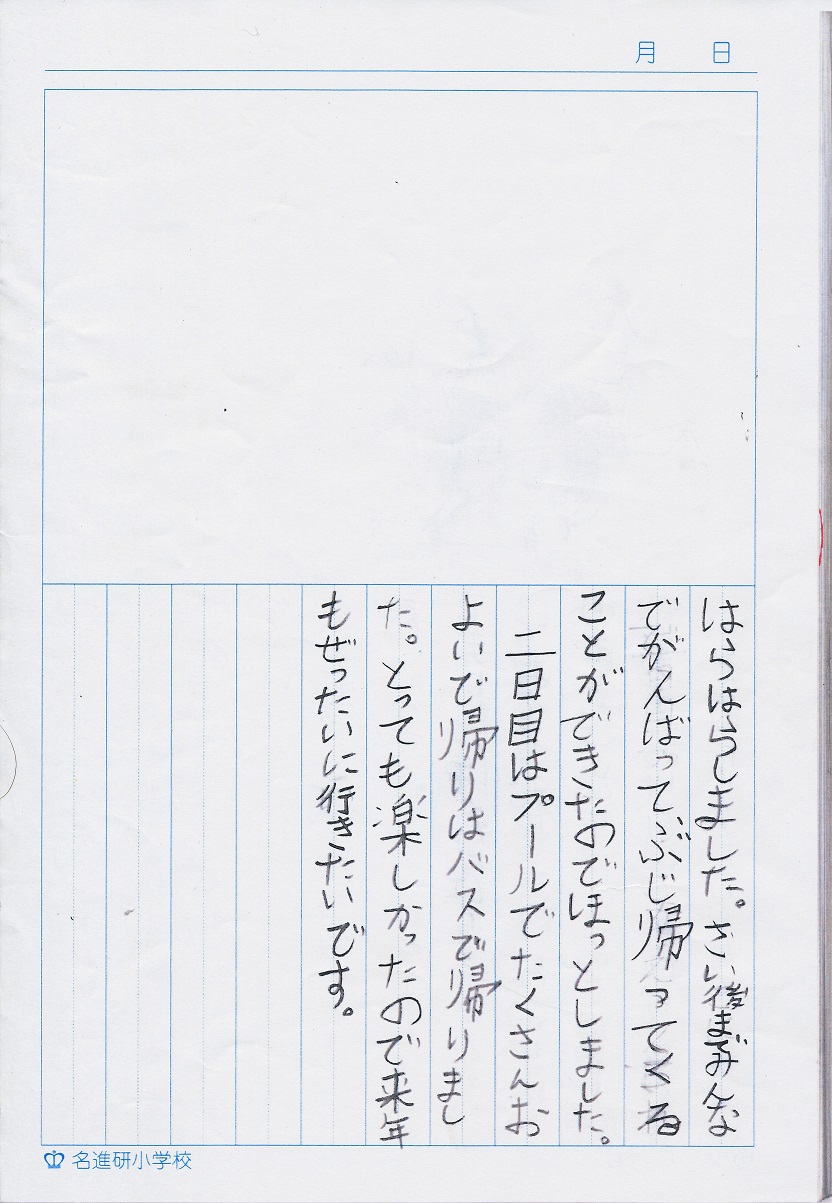 月 日
はらはらしました。さい後までみんな
でがんばってぶじ帰ってくる
ことができたのでほっとしました。
二日目はプールでたくさんお
よいで帰りはバスで帰りまし
た。とっても楽しかったので来年
もぜったいに行きたいです。
名進研小学校